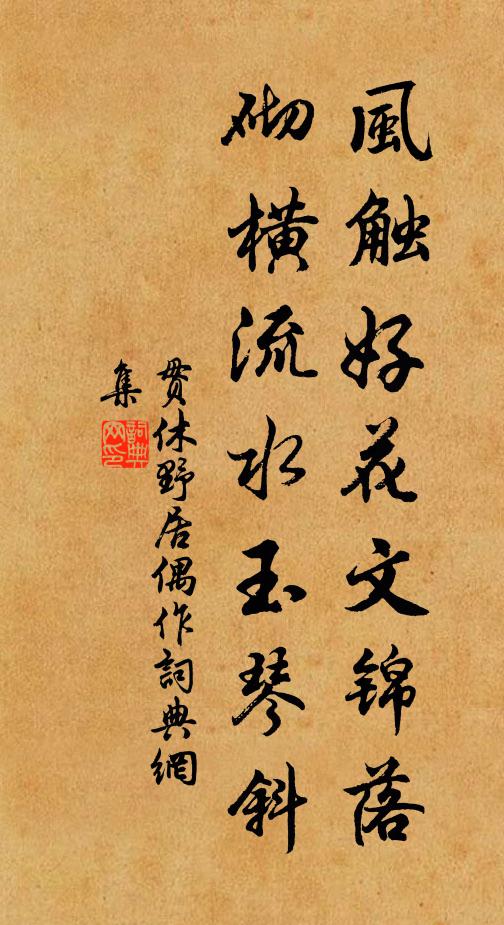 風触好花文锦落
砌横流水玉琴斜
贯休野居偶作詞典網
集
詞典
网印